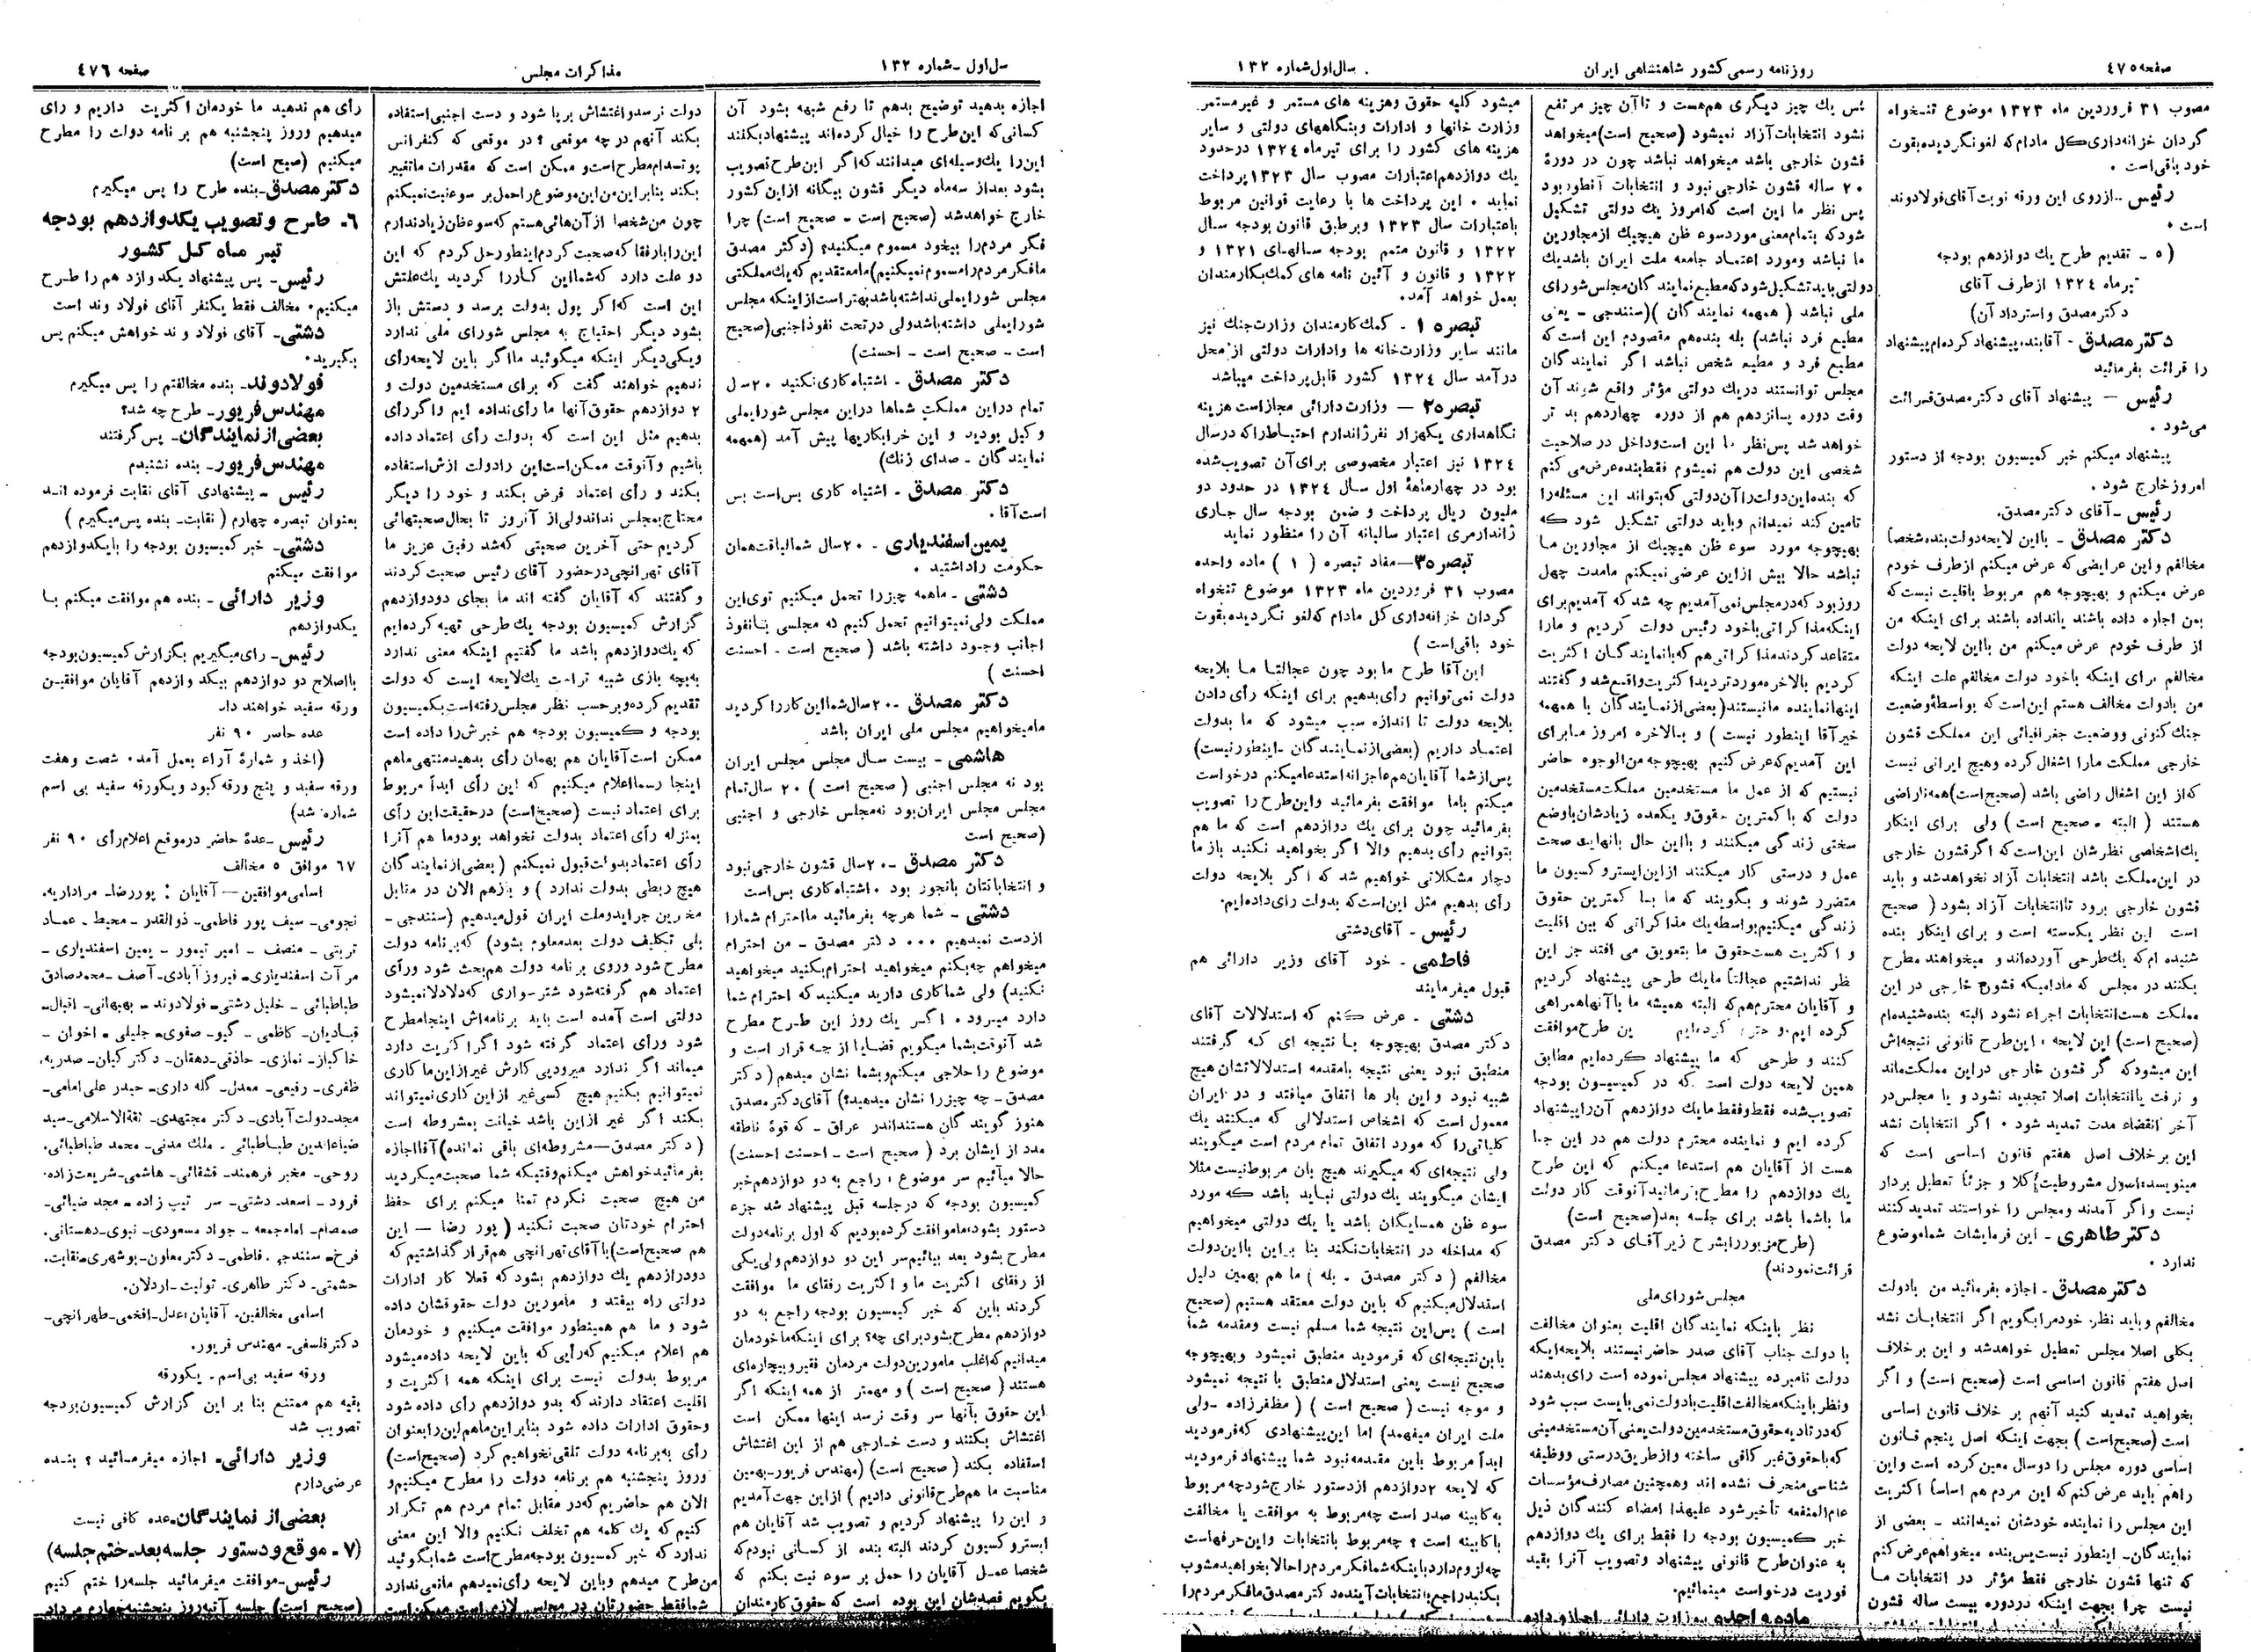 صفحه ٤٧٥
روزنامه رسمی کشور شاهنشاهی ایران
سال اول شماره ١٣٢
مصوب ٣١ فروردین ماه ١٣٢٣ موضوع تنخواه
گردان خزانه‌داری کل مادام که لغو نگردیده بقوت
خود باقی است .
رئیس ـ از روی این ورقه نوبت آقای فولادوند
است .
(٥ ـ تقدیم طرح یك دوازدهم بودجه
تیرماه ١٣٢٤ از طرف آقای
دکتر مصدق و استرداد آن)
دکتر مصدق ـ آقا بنده پیشنهاد کرده‌ام پیشنهاد
را قرائت بفرمائید
رئیس — پیشنهاد آقای دکتر مصدق قرائت
می‌شود .
پیشنهاد میکنم خبر کمیسیون بودجه از دستور
امروز خارج شود .
رئیس ـ آقای دکتر مصدق.
دکتر مصدق ـ با این لایحه دولت بنده شخصاً
مخالفم و این عرایضی که عرض میکنم از طرف خودم
عرض میکنم و بهیچوجه هم مربوط باقلیت نیست که
بمن اجازه داده باشند یا نداده باشند برای اینکه من
از طرف خودم عرض میکنم من با این لایحه دولت
مخالفم برای اینکه با خود دولت مخالفم علت اینکه
من با دولت مخالف هستم این است که بواسطهٔ وضعیت
جنك کنونی و وضعیت جغرافیائی این مملکت قشون
خارجی مملکت ما را اشغال کرده و هیچ ایرانی نیست
که از این اشغال راضی باشد (صحیح است) همه ناراضی
هستند ( البته ـ صحیح است ) ولی برای اینکار
یك اشخاصی نظرشان این است که اگر قشون خارجی
در این مملکت باشد انتخابات آزاد نخواهد شد و باید
قشون خارجی برود تا انتخابات آزاد بشود ( صحیح
است این نظر یکدسته است و برای اینکار بنده
شنیده ام که یك طرحی آورده‌اند و میخواهند مطرح
بکنند در مجلس که مادامیکه قشون خارجی در این
مملکت هست انتخابات اجراء نشود البته بنده شنیده‌ام
(صحیح است) این لایحه ، این طرح قانونی نتیجه‌اش
این میشود که گر قشون خارجی در این مملکت ماند
و نرفت یا انتخابات اصلا تجدید نشود و یا مجلس در
آخر انقضاء مدت تمدید شود . اگر انتخابات نشد
این بر خلاف اصل هفتم قانون اساسی است که
مینویسد: اصول مشروطیت کلا و جزئاً تعطیل بردار
نیست و اگر آمدند و مجلس را خواستند تمدید کنند
دکتر طاهری ـ این فرمایشات شما موضوع
ندارد .
دکتر مصدق ـ اجازه بفرمائید من با دولت
مخالفم و باید نظر خودم را بگویم اگر انتخابات نشد
بکلی اصلا مجلس تعطیل خواهد شد و این بر خلاف
اصل هفتم قانون اساسی است (صحیح است) و اگر
بخواهید تمدید کنید آنهم بر خلاف قانون اساسی
است (صحیح است) بجهت اینکه اصل پنجم قانون
اساسی دوره مجلس را دو سال معین کرده است و این
راهم باید عرض کنم که این مردم هم اساساً اکثریت
این مجلس را نماینده خودشان نمیدانند ـ بعضی از
نمایندگان ـ اینطور نیست پس بنده میخواهم عرض کنم
که تنها قشون خارجی فقط مؤثر در انتخابات ما
نیست چرا بجهت اینکه در دوره بیست ساله قشون
پس یك چیز دیگری هم هست و تا آن چیز مرتفع
نشود انتخابات آزاد نمیشود (صحیح است) میخواهد
قشون خارجی باشد میخواهد نباشد چون در دورهٔ
٢٠ ساله قشون خارجی نبود و انتخابات آنطور بود
پس نظر ما این است که امروز یك دولتی تشکیل
شود که بتمام معنی مورد سوء ظن هیچیك از مجاورین
ما نباشد و مورد اعتماد جامعه ملت ایران باشد یك
دولتی باید تشکیل شود که مطیع نمایندگان مجلس شورای
ملی نباشد ( همهمه نمایندگان ) (سنندجی ـ یعنی
مطیع فرد نباشد) بله بنده هم مقصودم این است که
مطیع فرد و مطیع شخص نباشد اگر نمایندگان
مجلس توانستند در یك دولتی مؤثر واقع شوند آن
وقت دوره پانزدهم هم از دوره چهاردهم بد تر
خواهد شد پس نظر ما این است و داخل در صلاحیت
شخصی این دولت هم نمیشوم فقط بنده عرض می کنم
که بنده این دولت را آن دولتی که بتواند این مسئله را
تامین کند نمیدانم و باید دولتی تشکیل شود که
بهیچوجه مورد سوء ظن هیچیك از مجاورین ما
نباشد حالا بیش از این عرضی نمیکنم ما مدت چهل
روز بود که در مجلس نمی‌آمدیم چه شد که آمدیم برای
اینکه مذاکراتی با خود رئیس دولت کردیم و ما را
متقاعد کردند مذاکراتی هم که با نمایندگان اکثریت
کردیم بالاخره مورد تردید اکثریت واقع شد و گفتند
اینها نماینده ما نیستند (بعضی از نمایندگان با همهمه
خیر آقا اینطور نیست ) و بالاخره امروز ما برای
این آمدیم که عرض کنیم بهیچوجه من الوجوه حاضر
نیستیم که از عمل ما مستخدمین مملکت مستخدمین
دولت که با کمترین حقوق و یکعده زیادشان با وضع
سختی زندگی میکنند و با این حال بانهایت صحت
عمل و درستی کار میکنند از این ابستروکسیون ما
متضرر شوند و بگویند که ما با کمترین حقوق
زندگی میکنیم بواسطه یك مذاکراتی که بین اقلیت
و اکثریت هست حقوق ما بتعویق می افتد جز این
نظر نداشتیم عجالتاً ما یك طرحی پیشنهاد کردیم
و آقایان محترم هم که البته همیشه ما با آنها همراهی
کرده ایم و کرده‌ایم این طرح موافقت
کنند و طرحی که ما پیشنهاد کرده‌ایم مطابق
همین لایحه دولت است که در کمیسیون بودجه
تصویب شده فقط و فقط ما یك دوازدهم آنرا پیشنهاد
کرده ایم و نماینده محترم دولت هم در این جا
هست از آقایان هم استدعا میکنم که این طرح
یك دوازدهم را مطرح بفرمائید آنوقت کار دولت
ما باشما باشد برای جلسه بعد (صحیح است)
(طرح مزبور را بشرح زیر آقای دکتر مصدق
قرائت نمودند)
مجلس شورای ملی
نظر باینکه نمایندگان اقلیت بعنوان مخالفت
با دولت جناب آقای صدر حاضر نیستند بلایحه‌ایکه
دولت نامبرده پیشنهاد مجلس نموده است رأی بدهند
و نظر باینکه مخالفت اقلیت با دولت نمی‌بایست سبب شود
که در تادیه حقوق مستخدمین دولت یعنی آن مستخدمینی
که با حقوق غیر کافی ساخته و از طریق درستی و وظیفه
شناسی منحرف نشده اند و همچنین مصارف مؤسسات
عام المنفعه تأخیر شود علیهذا امضاء کنندگان ذیل
خبر کمیسیون بودجه را فقط برای یك دوازدهم
به عنوان طرح قانونی پیشنهاد و تصویب آنرا بقید
فوریت درخواست مینمائیم.
ماده واحده ـ وزارت دارائی اجازه داده
میشود کلیه حقوق و هزینه های مستمر و غیر مستمر
وزارت خانها و ادارات و بنگاههای دولتی و سایر
هزینه های کشور را برای تیرماه ١٣٢٤ در حدود
یك دوازدهم اعتبارات مصوب سال ١٣٢٣ پرداخت
نماید . این پرداخت ها با رعایت قوانین مربوط
باعتبارات سال ١٣٢٣ و بر طبق قانون بودجه سال
١٣٢٢ و قانون متمم بودجه سالهای ١٣٢١ و
١٣٢٢ و قانون و آئین نامه های کمك بکارمندان
بعمل خواهد آمد.
تبصره ١ ـ کمك کارمندان وزارت جنك نیز
مانند سایر وزارت خانه ها و ادارات دولتی از محل
درآمد سال ١٣٢٤ کشور قابل پرداخت میباشد
تبصره ٢ — وزارت دارائی مجاز است هزینه
نگاهداری یکهزار نفر ژاندارم احتیاط را که در سال
١٣٢٤ نیز اعتبار مخصوصی برای آن تصویب شده
بود در چهار ماههٔ اول سال ١٣٢٤ در حدود دو
ملیون ریال پرداخت و ضمن بودجه سال جاری
ژاندارمری اعتبار سالیانه آن را منظور نماید
تبصره ٣ — مفاد تبصره ( ١ ) ماده واحده
مصوب ٣١ فروردین ماه ١٣٢٣ موضوع تنخواه
گردان خزانه‌داری کل مادام که لغو نگردیده بقوت
خود باقی است )
این آقا طرح ما بود چون عجالتا ما بلایحه
دولت نمی توانیم رأی بدهیم برای اینکه رأی دادن
بلایحه دولت تا اندازه سبب میشود که ما بدولت
اعتماد داریم (بعضی از نمایندگان ـ اینطور نیست)
پس از شما آقایان هم عاجزانه استدعا میکنم درخواست
میکنم باما موافقت بفرمائید و این طرح را تصویب
بفرمائید چون برای یك دوازدهم است که ما هم
بتوانیم رأی بدهیم والا اگر بخواهید نکنید باز ما
دچار مشکلاتی خواهیم شد که اگر بلایحه دولت
رأی بدهیم مثل این است که بدولت رای داده‌ایم.
رئیس ـ آقای دشتی
فاطمی ـ خود آقای وزیر دارائی هم
قبول میفرمایند
دشتی ـ عرض کنم که استدلالات آقای
دکتر مصدق بهیچوجه با نتیجه ای که گرفتند
منطبق نبود یعنی نتیجه بامقدمه استدلالاتشان هیچ
شبیه نبود و این بار ها اتفاق میافتد و در ایران
معمول است که اشخاص استدلالی که میکنند یك
کلیاتی را که مورد اتفاق تمام مردم است میگویند
ولی نتیجه‌ای که میگیرند هیچ بان مربوط نیست مثلا
ایشان میگویند یك دولتی نباید باشد که مورد
سوء ظن همسایگان باشد یا یك دولتی میخواهیم
که مداخله در انتخابات نکند بنا براین بااین دولت
مخالفم ( دکتر مصدق ـ بله ) ما هم بهمین دلیل
استدلال میکنیم که باین دولت معتقد هستیم (صحیح
است ) پس این نتیجه شما مسلم نیست و مقدمه شما
باین نتیجه‌ای که فرمودید منطبق نمیشود و بهیچوجه
صحیح نیست یعنی استدلال منطبق با نتیجه نمیشود
و موجه نیست ( صحیح است ) ( مظفرزاده ـ ولی
ملت ایران میفهمد) اما این پیشنهادی که فرمودید
ابداً مربوط باین مقدمه نبود شما پیشنهاد فرمودید
که لایحه ٢ دوازدهم از دستور خارج شود چه مربوط
به کابینه صدر است چه مربوط به موافقت یا مخالفت
با کابینه است ؟ چه مربوط بانتخابات و این حرفهاست
چه لزوم دارد با اینکه شما فکر مردم را حالا بخواهید مشوب
بکنید راجع بانتخابات آینده دکتر مصدق ما فکر مردم را
سال اول ـ شماره ١٣٢
مذاکرات مجلس
صفحه ٤٧٦
اجازه بدهید توضیح بدهم تا رفع شبهه بشود آن
کسانی که این طرح را خیال کرده‌اند پیشنهاد بکنند
این را یك وسیله‌ای میدانند که اگر این طرح تصویب
بشود بعد از سه ماه دیگر قشون بیگانه از این کشور
خارج خواهد شد (صحیح است ـ صحیح است) چرا
فکر مردم را بیخود مسموم میکنید؟ (دکتر مصدق
ما فکر مردم را مسموم نمیکنیم) ما معتقدیم که یك مملکتی
مجلس شورایملی نداشته باشد بهتر است از اینکه مجلس
شورایملی داشته باشد ولی در تحت نفوذ اجنبی (صحیح
است ـ صحیح است ـ احسنت)
دکتر مصدق ـ اشتباه کاری نکنید ٢٠ سال
تمام در این مملکت شماها در این مجلس شورایملی
وکیل بودید و این خرابکاریها پیش آمد (همهمه
نمایندگان ـ صدای زنك)
دکتر مصدق ـ اشتباه کاری بس است بس
است آقا .
یمین اسفندیاری ـ ٢٠ سال شما لیاقت همان
حکومت را داشتید .
دشتی ـ ما همه چیز را تحمل میکنیم توی این
مملکت ولی نمیتوانیم تحمل کنیم که مجلسی با نفوذ
اجانب وجود داشته باشد ( صحیح است ـ احسنت
احسنت )
دکتر مصدق ـ ٢٠ سال شما این کار را کردید
ما میخواهیم مجلس ملی ایران باشد
هاشمی ـ بیست سال مجلس مجلس ایران
بود نه مجلس اجنبی ( صحیح است ) ٢٠ سال تمام
مجلس مجلس ایران بود نه مجلس خارجی و اجنبی
(صحیح است
دکتر مصدق ـ ٢٠ سال قشون خارجی نبود
و انتخاباتتان بانجور بود . اشتباه کاری بس است
دشتی ـ شما هر چه بفرمائید ما احترام شما را
از دست نمیدهیم ... دکتر مصدق ـ من احترام
میخواهم چه بکنم میخواهید احترام بکنید میخواهید
نکنید) ولی شما کاری دارید میکنید که احترام شما
دارد میرود . اگر یك روز این طرح مطرح
شد آنوقت بشما میگویم قضایا از چه قرار است و
موضوع را حلاجی میکنم و بشما نشان میدهم (دکتر
مصدق ـ چه چیز را نشان میدهید؟) آقای دکتر مصدق
هنوز گویندگان هستند اندر عراق ـ که قوهٔ ناطقه
مدد از ایشان برد ( صحیح است ـ احسنت احسنت)
حالا میآئیم سر موضوع ، راجع به دو دوازدهم خبر
کمیسیون بودجه که در جلسه قبل پیشنهاد شد جزء
دستور بشود، ما موافقت کرده بودیم که اول برنامه دولت
مطرح بشود بعد بیائیم سر این دو دوازدهم ولی یکی
از رفقای اکثریت ما و اکثریت رفقای ما موافقت
کردند باین که خبر کمیسیون بودجه راجع به دو
دوازدهم مطرح بشود برای چه؟ برای اینکه ما خودمان
میدانیم که اغلب مامورین دولت مردمان فقیر و بیچاره‌ای
هستند ( صحیح است ) و مهمتر از همه اینکه اگر
این حقوق بآنها سر وقت نرسد اینها ممکن است
اغتشاش بکنند و دست خارجی هم از این اغتشاش
استفاده بکند ( صحیح است ) (مهندس فریور ـ بهمین
مناسبت ما هم طرح قانونی دادیم ) از این جهت آمدیم
و این را پیشنهاد کردیم و تصویب شد آقایان هم
ابستروکسیون کردند البته بنده از کسانی نبودم که
شخصا عمل آقایان را حمل بر سوء نیت بکنم که
بگویم قصدشان این بوده است که حقوق کارمندان
دولت نرسد و اغتشاش بر پا شود و دست اجنبی استفاده
بکند آنهم در چه موقعی ؟ در موقعی که کنفرانس
پوتسدام مطرح است و ممکن است که مقدرات ما تغییر
بکند بنابر این من این موضوع را حمل بر سوء نیت نمیکنم
چون من شخصا از آن هائی هستم که سوء ظن زیاد ندارم
این را با رفقا که صحبت کردم اینطور حل کردم که این
دو علت دارد که شما این کار را کردید یك علتش
این است که اگر پول بدولت برسد و دستش باز
بشود دیگر احتیاج به مجلس شورای ملی ندارد
و یکی دیگر اینکه میگوئید ما اگر باین لایحه رأی
ندهیم خواهند گفت که برای مستخدمین دولت و
٢ دوازدهم حقوق آنها ما رأی نداده ایم و اگر رأی
بدهیم مثل این است که بدولت رأی اعتماد داده
باشیم و آنوقت ممکن است این را دولت ازش استفاده
بکند و رأی اعتماد فرض بکند و خود را دیگر
محتاج بمجلس نداند ولی از آنروز تا بحال صحبتهائی
کردیم حتی آخرین صحبتی که شد رفیق عزیز ما
آقای تهرانچی در حضور آقای رئیس صحبت کردند
و گفتند که آقایان گفته اند ما بجای دو دوازدهم
گزارش کمیسیون بودجه یك طرحی تهیه کرده‌ایم
که یك دوازدهم باشد ما گفتیم اینکه معنی ندارد
به بچه بازی شبیه تر است یك لایحه ایست که دولت
تقدیم کرده و بر حسب نظر مجلس رفته است بکمیسیون
بودجه و کمیسیون بودجه هم خبرش را داده است
ممکن است آقایان هم بهمان رأی بدهید منتهی ما هم
اینجا رسما اعلام میکنیم که این رأی ابداً مربوط
برای اعتماد نیست (صحیح است) در حقیقت این رأی
بمنزله رأی اعتماد بدولت نخواهد بود و ما هم آنرا
رأی اعتماد بدولت قبول نمیکنم ( بعضی از نمایندگان
هیچ ربطی بدولت ندارد ) و باز هم الان در مقابل
مخبرین جراید و ملت ایران قول میدهیم (سنندجی ـ
بلی تکلیف دولت بعد معلوم بشود) که برنامه دولت
مطرح شود و روی برنامه دولت هم بحث شود و رأی
اعتماد هم گرفته شود شتر سواری که دلا دلا نمیشود
دولتی است آمده است باید برنامه‌اش اینجا مطرح
شود و رأی اعتماد گرفته شود اگر اکثریت دارد
میماند اگر ندارد میرود پی کارش غیر از این ما کاری
نمیتوانیم بکنیم هیچ کسی غیر از این کاری نمیتواند
بکند اگر غیر از این باشد خیانت بمشروطه است
( دکتر مصدق — مشروطه‌ای باقی نمانده) آقا اجازه
بفرمائید خواهش میکنم وقتیکه شما صحبت میکردید
من هیچ صحبت نکردم تمنا میکنم برای حفظ
احترام خودتان صحبت نکنید ( پور رضا — این
هم صحیح است) با آقای تهرانچی هم قرار گذاشتیم که
دو دوازدهم یك دوازدهم بشود که فعلا کار ادارات
دولتی راه بیفتد و مامورین دولت حقوقشان داده
شود و ما هم همینطور موافقت میکنیم و خودمان
هم اعلام میکنیم که رأیی که باین لایحه داده میشود
مربوط بدولت نیست برای اینکه همه اکثریت و
اقلیت اعتقاد دارند که بدو دوازدهم رأی داده شود
و حقوق ادارات داده شود بنابر این ما هم این را بعنوان
رأی به برنامه دولت تلقی نخواهیم کرد (صحیح است)
و روز پنجشنبه هم برنامه دولت را مطرح میکنیم و
الان هم حاضریم که در مقابل تمام مردم هم تکرار
کنیم که یك کلمه هم تخلف نکنیم والا این معنی
ندارد که خبر کمسیون بودجه مطرح است شما بگوئید
من طرح میدهم و باین لایحه رأی نمیدهم مانعی ندارد
شما فقط حضورتان در مجلس لازم است ممکن است
رأی هم ندهید ما خودمان اکثریت داریم و رای
میدهیم و روز پنجشنبه هم برنامه دولت را مطرح
میکنیم (صحیح است)
دکتر مصدق ـ بنده طرح را پس میگیرم
٦ـ طرح و تصویب یکدوازدهم بودجه
تیر ماه کل کشور
رئیس ـ پس پیشنهاد یکدوازدهم را طرح
میکنیم. مخالف فقط یکنفر آقای فولاد وند است
دشتی ـ آقای فولاد وند خواهش میکنم پس
بگیرید.
فولادوند ـ بنده مخالفتم را پس میگیرم
مهندس فریور ـ طرح چه شد؟
بعضی از نمایندگان ـ پس گرفتند
مهندس فریور ـ بنده نشنیدم
رئیس ـ پیشنهادی آقای نقابت فرموده اند
بعنوان تبصره چهارم ( نقابت ـ بنده پس میگیرم )
دشتی ـ خبر کمیسیون بودجه را بایکدوازدهم
موافقت میکنم
وزیر دارائی ـ بنده هم موافقت میکنم با
یکدوازدهم
رئیس ـ رای میگیریم بگزارش کمیسیون بودجه
بااصلاح دو دوازدهم بیکدوازدهم آقایان موافقین
ورقه سفید خواهند داد
عده حاضر ٩٠ نفر
(اخذ و شمارهٔ آراء بعمل آمد. شصت و هفت
ورقه سفید و پنج ورقه کبود و یکورقه سفید بی اسم
شماره شد)
رئیس ـ عدهٔ حاضر در موقع اعلام رأی ٩٠ نفر
٦٧ موافق ٥ مخالف
اسامی موافقین — آقایان : پوررضا ـ مراد اریه.
نجومی ـ سیف پور فاطمی ـ ذوالقدر ـ محیط ـ عماد
تربتی ـ منصف ـ امیر تیمور ـ یمین اسفندیاری ـ
مرآت اسفندیاری ـ فیروز آبادی ـ آصف ـ محمد صادق
طباطبائی ـ خلیل دشتی ـ فولادوند ـ بهبهانی ـ اقبال ـ
قبادیان ـ کاظمی ـ گیو ـ صفوی ـ جلیلی ـ اخوان ـ
خاکباز ـ نمازی ـ حاذقی ـ دهقان ـ دکتر کیان ـ صدریه.
ظفری ـ رفیعی ـ معدل ـ گله داری ـ حیدر علی امامی ـ
مجد ـ دولت آبادی ـ دکتر مجتهدی ـ ثقةالاسلامی ـ سید
ضیاءالدین طباطبائی ـ ملك مدنی ـ محمد طباطبائی.
روحی ـ مخبر فرهمند ـ قشقائی ـ هاشمی ـ شریعت زاده.
فرود ـ اسعد ـ دشتی ـ سر تیپ زاده ـ مجد ضیائی ـ
صمصام ـ امام جمعه ـ جواد مسعودی ـ نبوی ـ دهستانی.
فرخ ـ سنندجی . فاطمی ـ دکتر معاون ـ بوشهری ـ نقابت.
حشمتی ـ دکتر طاهری ـ تولیت ـ اردلان.
اسامی مخالفین. آقایان: عدل ـ افخمی ـ طهرانچی ـ
دکتر فلسفی ـ مهندس فریور.
ورقه سفید بی‌اسم ـ یکورقه
بقیه هم ممتنع بنا بر این گزارش کمیسیون بودجه
تصویب شد
وزیر دارائی ـ اجازه میفرمائید ؟ بنده
عرضی دارم
بعضی از نمایندگان ـ عده کافی نیست
(٧ ـ موقع و دستور جلسه بعد ـ ختم جلسه)
رئیس ـ موافقت میفرمائید جلسه را ختم کنیم
(صحیح است) جلسه آتیه روز پنجشنبه چهارم مرداد